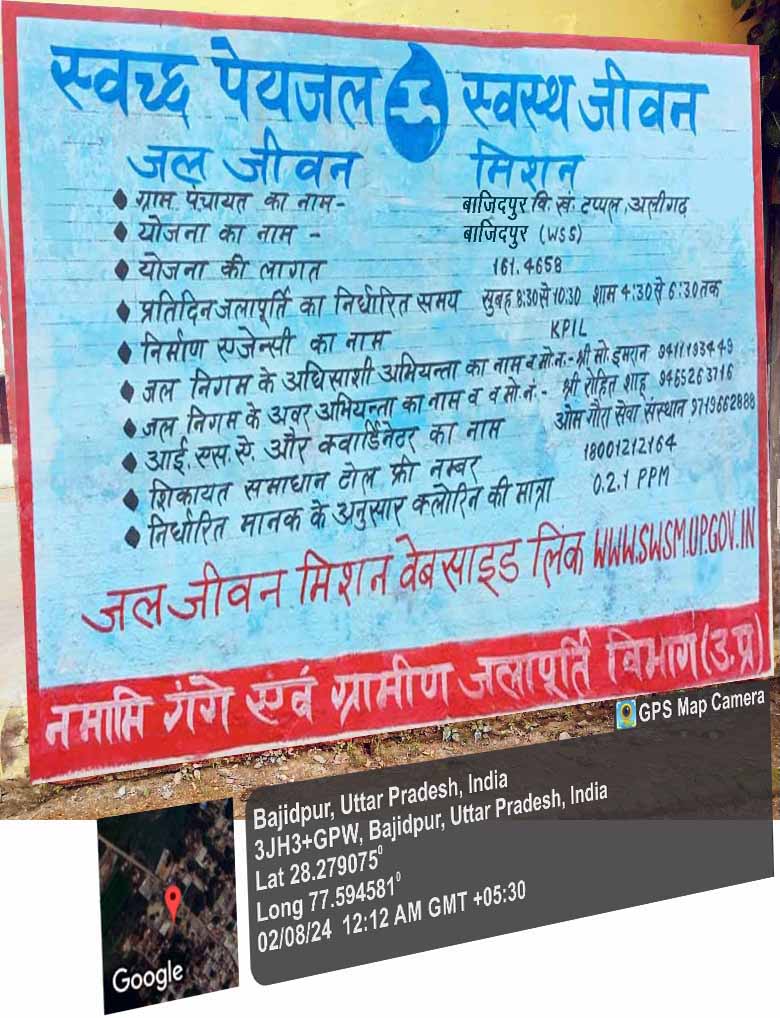 स्वच्छ पेयजल स्वस्थ जीवन
जल जीवन मिशन
ग्राम पंचायत का नाम- बाजिदपुर वि.खं. टप्पल, अलीगढ़
योजना का नाम - बाजिदपुर (WSS)
योजना की लागत 161.4658
प्रतिदिन जलापूर्ति का निर्धारित समय सुबह 8:30 से 10:30 शाम 4:30 से 6:30 तक
निर्माण एजेन्सी का नाम KPIL
जल निगम के अधिसाशी अभियन्ता का नाम व मो.न.- श्री मो. इमरान 9411193449
जल निगम के अवर अभियन्ता का नाम व व मो.नं.- श्री रोहित शाहू 9465263716
आई.एस.ऐ. और क्वार्डिनेटर का नाम ओम गौरा सेवा संस्थान 9719662888
शिकायत समाधान टोल फ्री नम्बर 18001212164
निर्धारित मानक के अनुसार क्लोरिन की मात्रा 0.2.1 PPM
जल जीवन मिशन वेबसाइड लिंक WWW.SWSM.UP.GOV.IN
नमामि गंगे एवं ग्रामीण जलापूर्ति विभाग (उ.प्र)
GPS Map Camera
Bajidpur, Uttar Pradesh, India
3JH3+GPW, Bajidpur, Uttar Pradesh, India
Lat 28.279075°
Long 77.594581°
02/08/24 12:12 AM GMT +05:30
Google